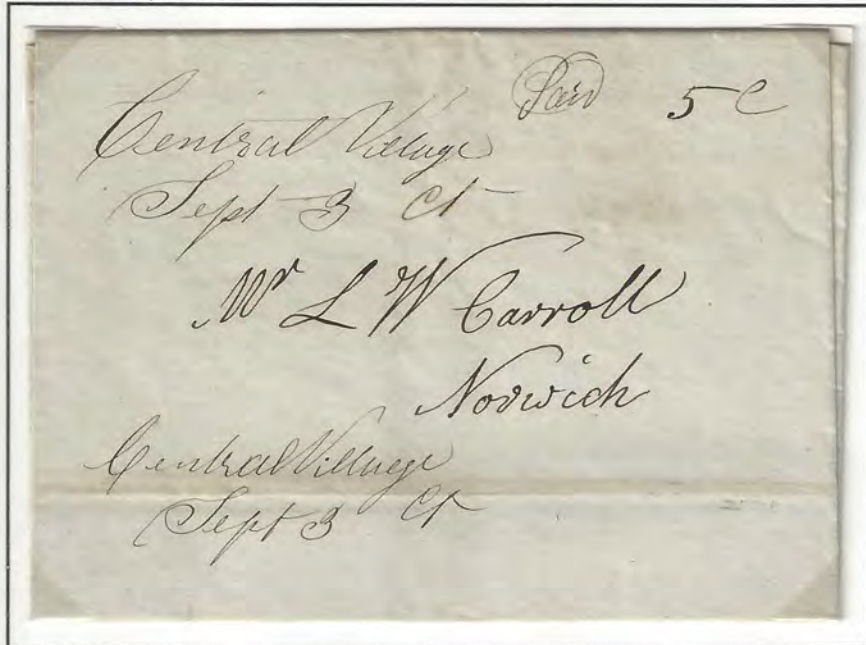 Paid 5 C
Central Village
Sept 3 Ct
Mr L W Carroll
Norwich
Central Village
Sept 3 Ct